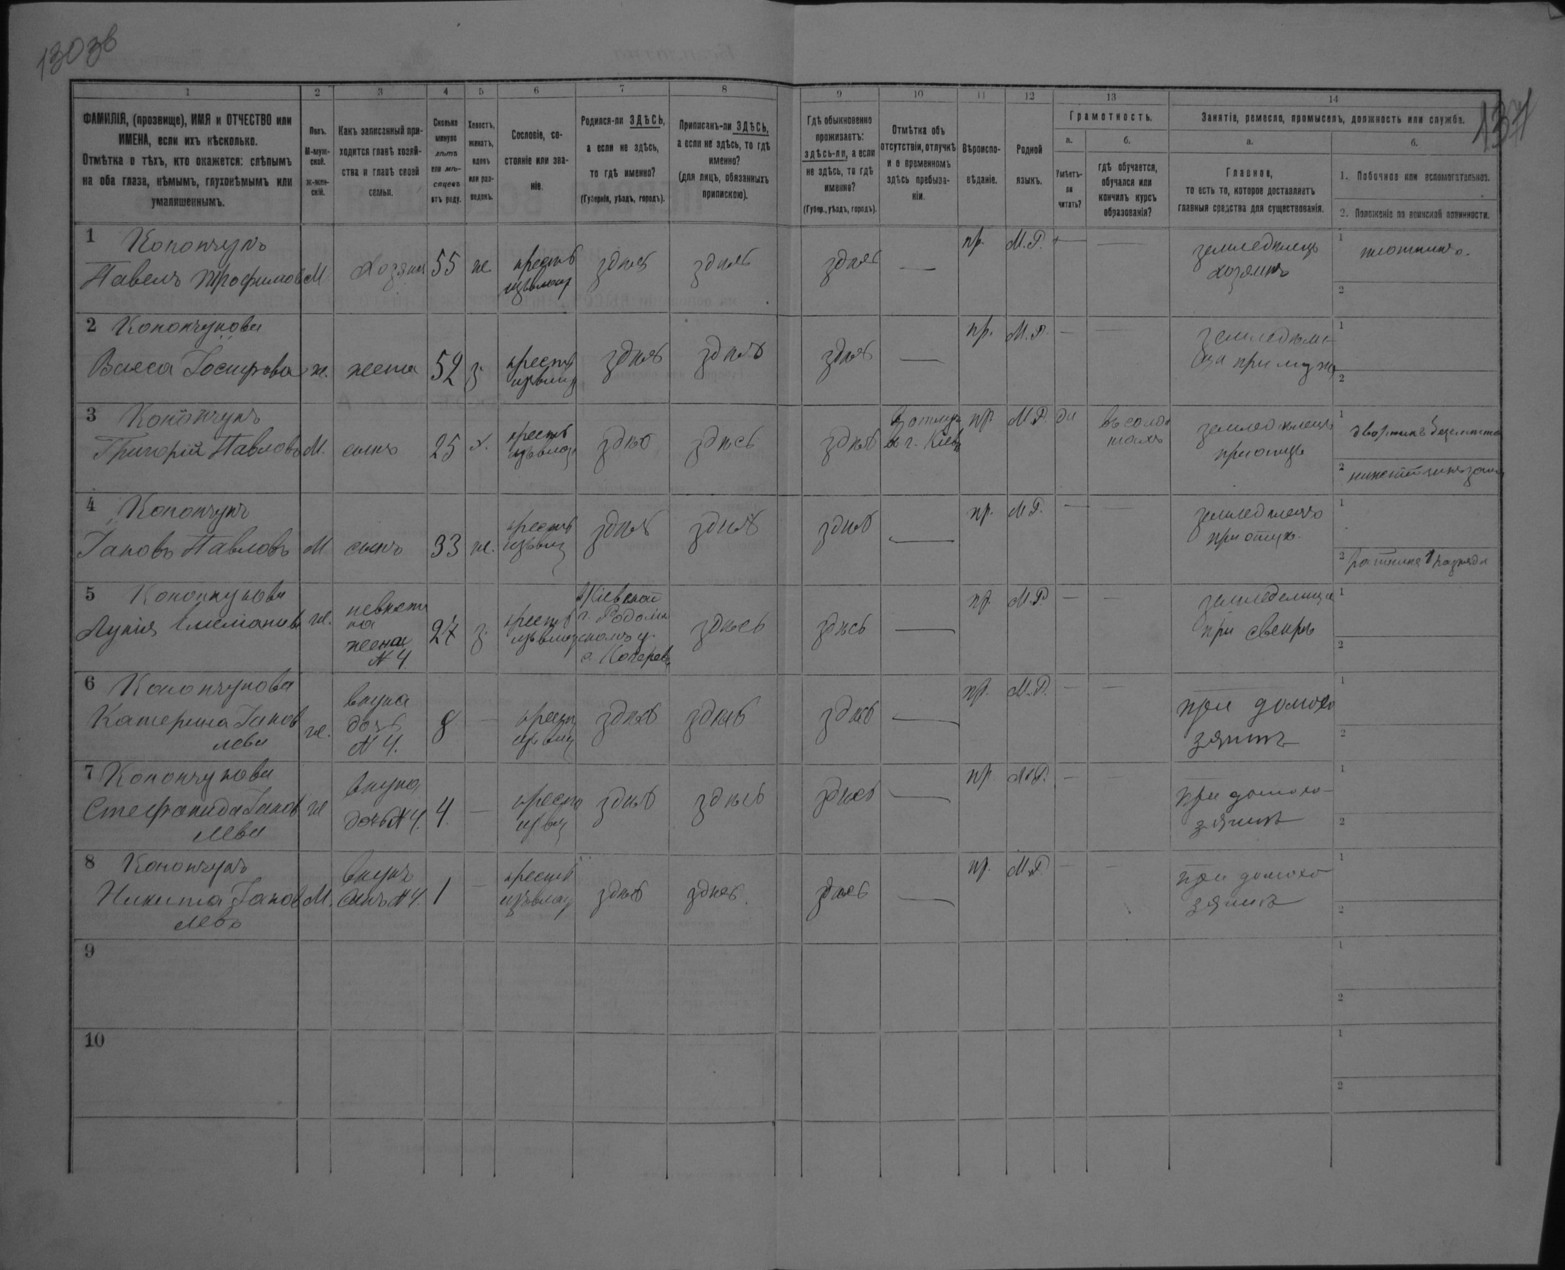 130зв
137
1 2 3 4 5 6 7 8 9 10 11 12 13 14
ФАМИЛІЯ, (прозвище), ИМЯ и ОТЧЕСТВО или
ИМЕНА, если ихъ нѣсколько.
Отмѣтка о тѣхъ, кто окажется: слѣпымъ
на оба глаза, нѣмымъ, глухонѣмымъ или
умалишеннымъ.
Полъ.
М-муж-
ской.
Ж-жен-
скій.
Какъ записанный при-
ходится главѣ хозяй-
ства и главѣ своей
семьи.
Сколько
минуло
лѣтъ
или мѣ-
сяцевъ
отъ роду.
Холостъ,
женатъ,
вдовъ
или раз-
веденъ.
Сословіе, со-
стояніе или зва-
ніе.
Родился-ли ЗДѢСЬ,
а если не здѣсь,
то гдѣ именно?
(Губернія, уѣздъ, городъ).
Приписанъ-ли ЗДѢСЬ,
а если не здѣсь, то гдѣ
именно?
(для лицъ, обязанныхъ
припискою).
Гдѣ обыкновенно
проживаетъ:
здѣсь-ли, а если
не здѣсь, то гдѣ
именно?
(Губер., уѣздъ, городъ).
Отмѣтка объ
отсутствіи, отлучкѣ
и о временномъ
здѣсь пребыва-
ніи.
Вѣроиспо-
вѣданіе.
Родной
языкъ.
Грамотность.
а.
Умѣетъ-
ли
читать?
б.
гдѣ обучается,
обучался или
кончилъ курсъ
образованія?
Занятіе, ремесло, промыселъ, должность или служба.
а.
Главное,
то есть то, которое доставляетъ
главныя средства для существованія.
б.
1. Побочное или вспомогательное.
2. Положеніе по воинской повинности.
1 Конончукъ
Павелъ Трофимовъ М Хозяин 55 же крестьян здѣсь здѣсь здѣсь — пр. М.Р. — —
земледѣлецъ
хозяинъ
1 плотникъ.
2
2 Конончукова
Васса Іосифова ж. жена 52 з. здѣсь здѣсь здѣсь — пр. М.Р. — —
при мужѣ
1
2
3 Конончукъ
Григорій Павловъ М. сынъ 25 х. здѣсь здѣсь здѣсь
въ г. Кіевѣ
пр. М.Р. да
земледѣлецъ
при отцѣ
1
2
4 Конончукъ
Іаковъ Павловъ М сынъ 33 же. здѣсь здѣсь здѣсь — пр. М.Р. — —
земледѣлецъ
при отцѣ.
1
2 Ратникъ 1 разряда
5 Конончукова
Лукія ж. невѣстка
жена
№4 27 з.
Кіевской
г. Радомы
скаго у.
здѣсь здѣсь — пр. М.Р. — —
земледелица
при свекрѣ
1
2
6 Конончукова
Катерина Іаков
лева ж. внука
дочь
№4. 8 — здѣсь здѣсь здѣсь — пр. М.Р. — —
при домохо
зяинѣ
1
2
7 Конончукова
Стефанида Іаков
лева ж внука
дочь №4. 4. — здѣсь здѣсь здѣсь — пр М.Р. — —
при домохо-
зяинѣ
1
2
8 Конончукъ
Никита Іаков
левъ М. внукъ
сынъ №4 1 — здѣсь здѣсь здѣсь — пр. М.Р. — —
при домохо
зяинѣ
1
2
9
1
2
10
1
2